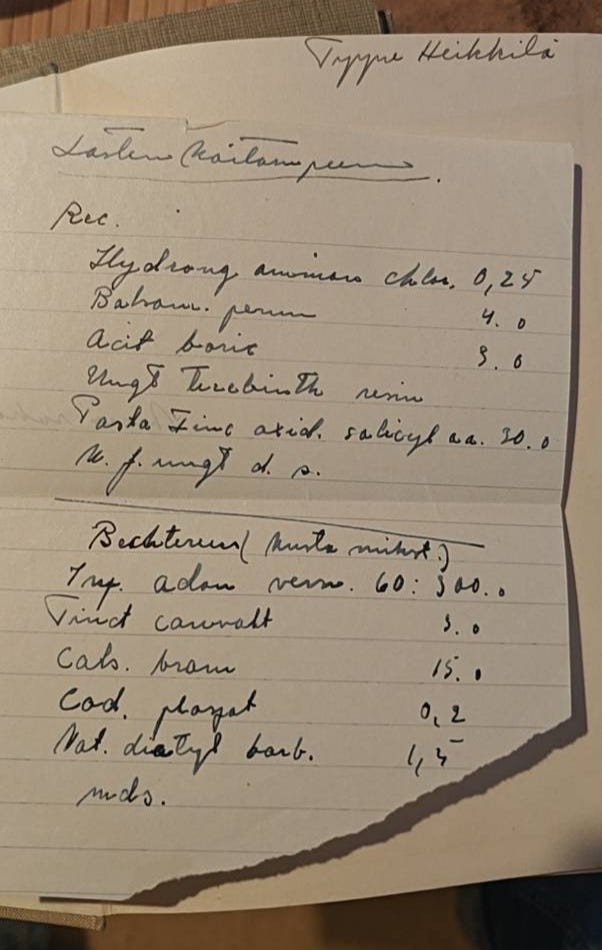 Tyyne Heikkilä
Lasten
Rec.
Hydrarg ammon chlor. 0,25
Balsam. peruv 4.0
Acit boric 3.0
Ungt terebinth resin
Pasta Zinc oxid. salicyl aa. 30.0
M. f. ungt d. s.
Bechterew (Musta mikst.)
Inf. adon vern. 60: 300.0
Tinct convall 3.0
Calc. brom 15.0
Cod. phosfat 0,2
Nat. diatyl barb. 1,5
mds.